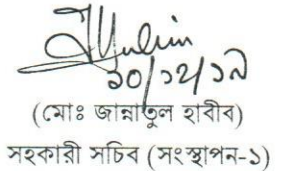 ১০/১২/১৯
(মোঃ জান্নাতুল হাবীব)
সহকারী সচিব (সংস্থাপন-১)